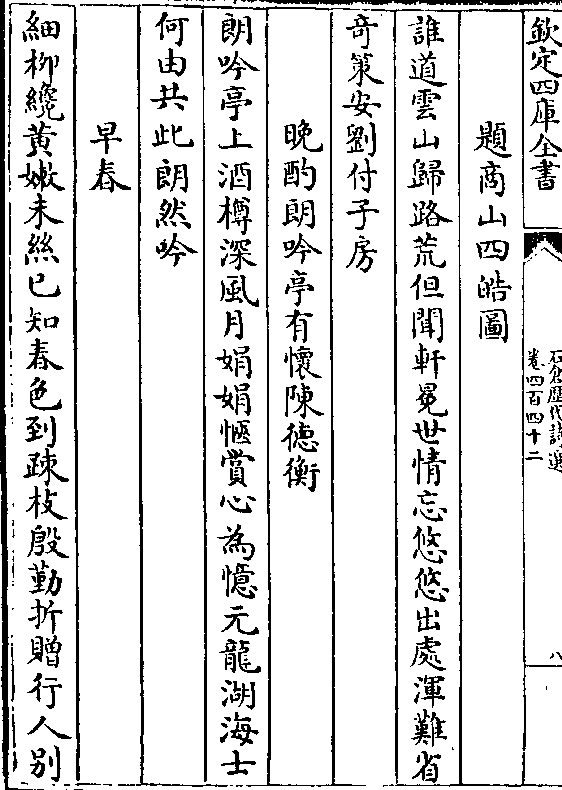 欽定四庫全書
石倉歷代詩選
卷四百四十二
八
題商山四皓圖
誰道雲山歸路荒但聞軒冕世情忘悠悠出處渾難省
奇策安劉付子房
晚酌朗吟亭有懷陳德衡
朗吟亭上酒樽深風月娟娟愜賞心為憶元龍湖海士
何由共此朗然吟
早春
細柳纔黃嫩未絲已知春色到疎枝殷勤折贈行人别